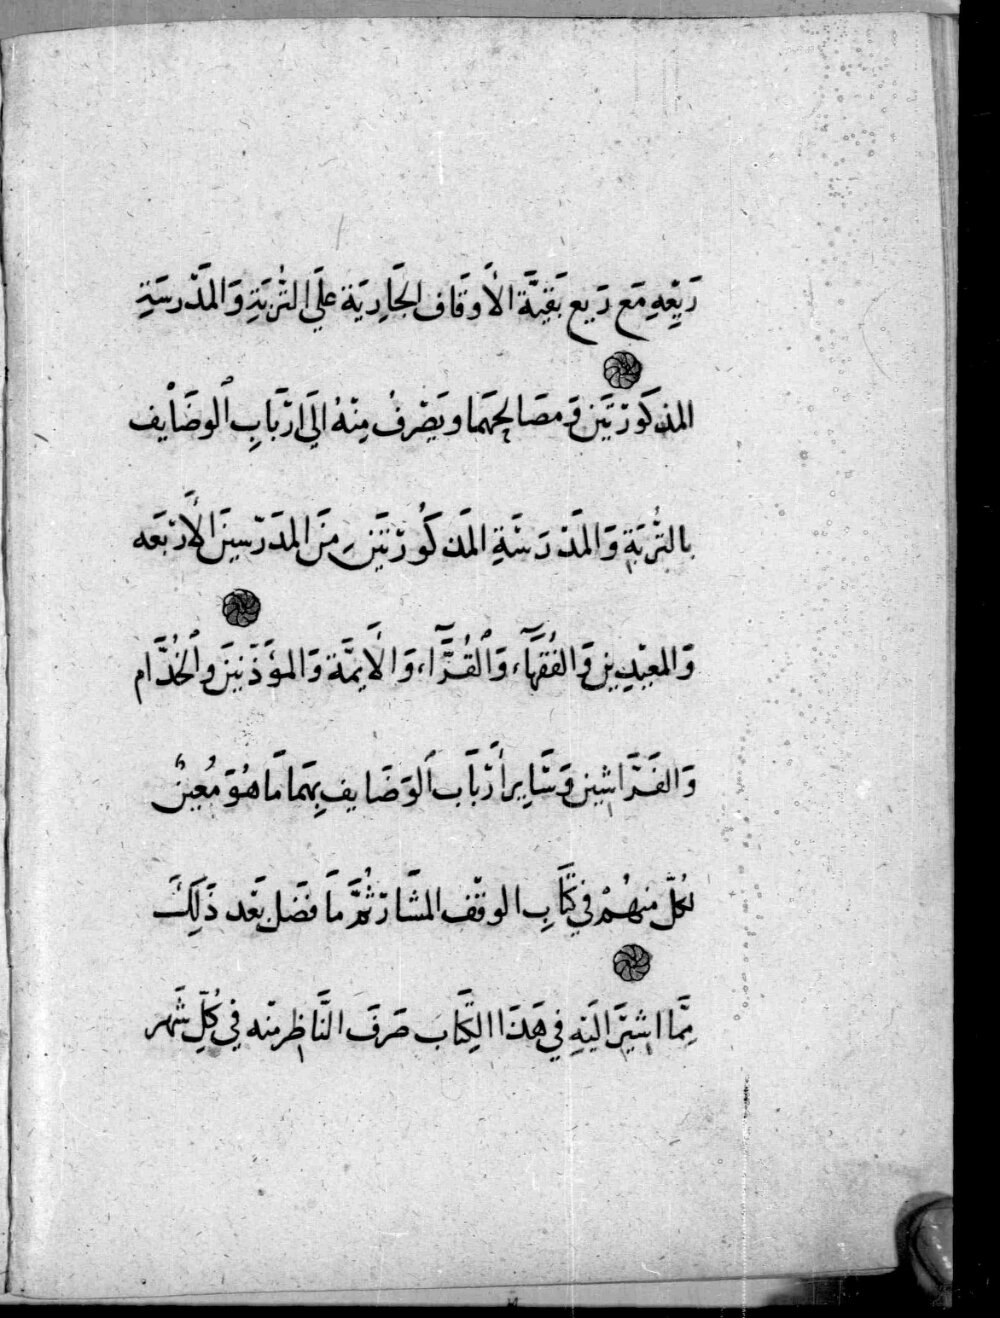 رَيْعِهِ مَع رَيع بَقيَّة الأَوقَاف الجَارِيَة عَلَى التُّربَةِ وَالمَدْرسَةِ
المذكَورْتَين وَ مصَالِحِهمَا و يَصْرفُ مِنْهُ اِلَى اَرْبَابِ ٱلوضَايف
بالتُّربَةِ وَالمَدْرَسَةِ المَذكُورْتَيَن مِنَ المدَرّسِينَ الأَرْبَعَه
وَالمعِيْدِين وَالفُقَهَآء، وَٱلقُرَّآء، وَالأَيمَّة وَالمؤَذّنِينَ وٱلخُدَّام
وَالفَرَّاشِين وَسَايِر أَرْبَابَ ٱلوَضَايف بِهمَا مَا هُوَ مُعيَنٌ
لكلّ منهُمْ في كتَابِ الوقْف المشَارْ ثُمَّ مَا فَضَل بَعْد ذَلِكَ
مِمَّا اشِيرَ اليَهِ في هَذَا الِكتَابَ صَرفَ النَّاظِر منْه في كُلِّ شَهر